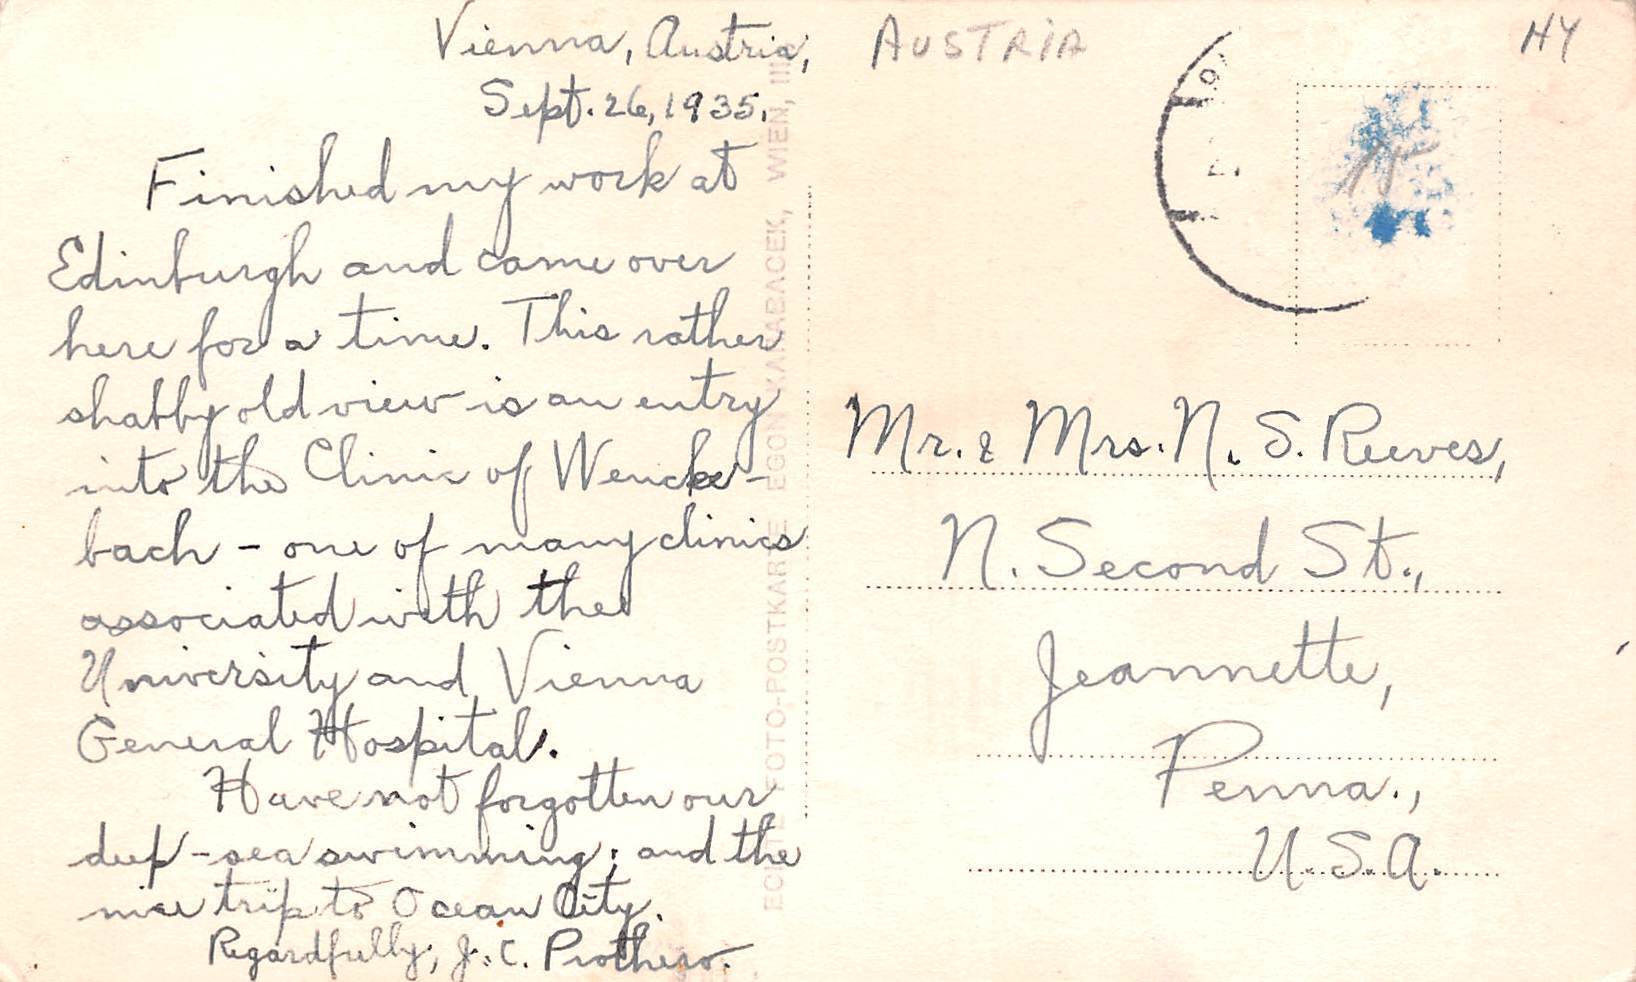 Vienna, Austria,
Sept. 26, 1935.
Finished my work at
Edinburgh and came over
here for a time. This rather
shabby old view is an entry
into the Clinic of Wencke-
bach - one of many clinics
associated with the
University and Vienna
General Hospital.
Have not forgotten our
deep-sea swimming; and the
nice trip to Ocean City.
Regardfully, J. C. Prothero.
ECHTE FOTO-POSTKARTE EGON KANABACEK, WIEN, III.
AUSTRIA
HY
Mr. & Mrs. N. S. Reeves,
N. Second St.,
Jeannette,
Penna.,
U.S.A.